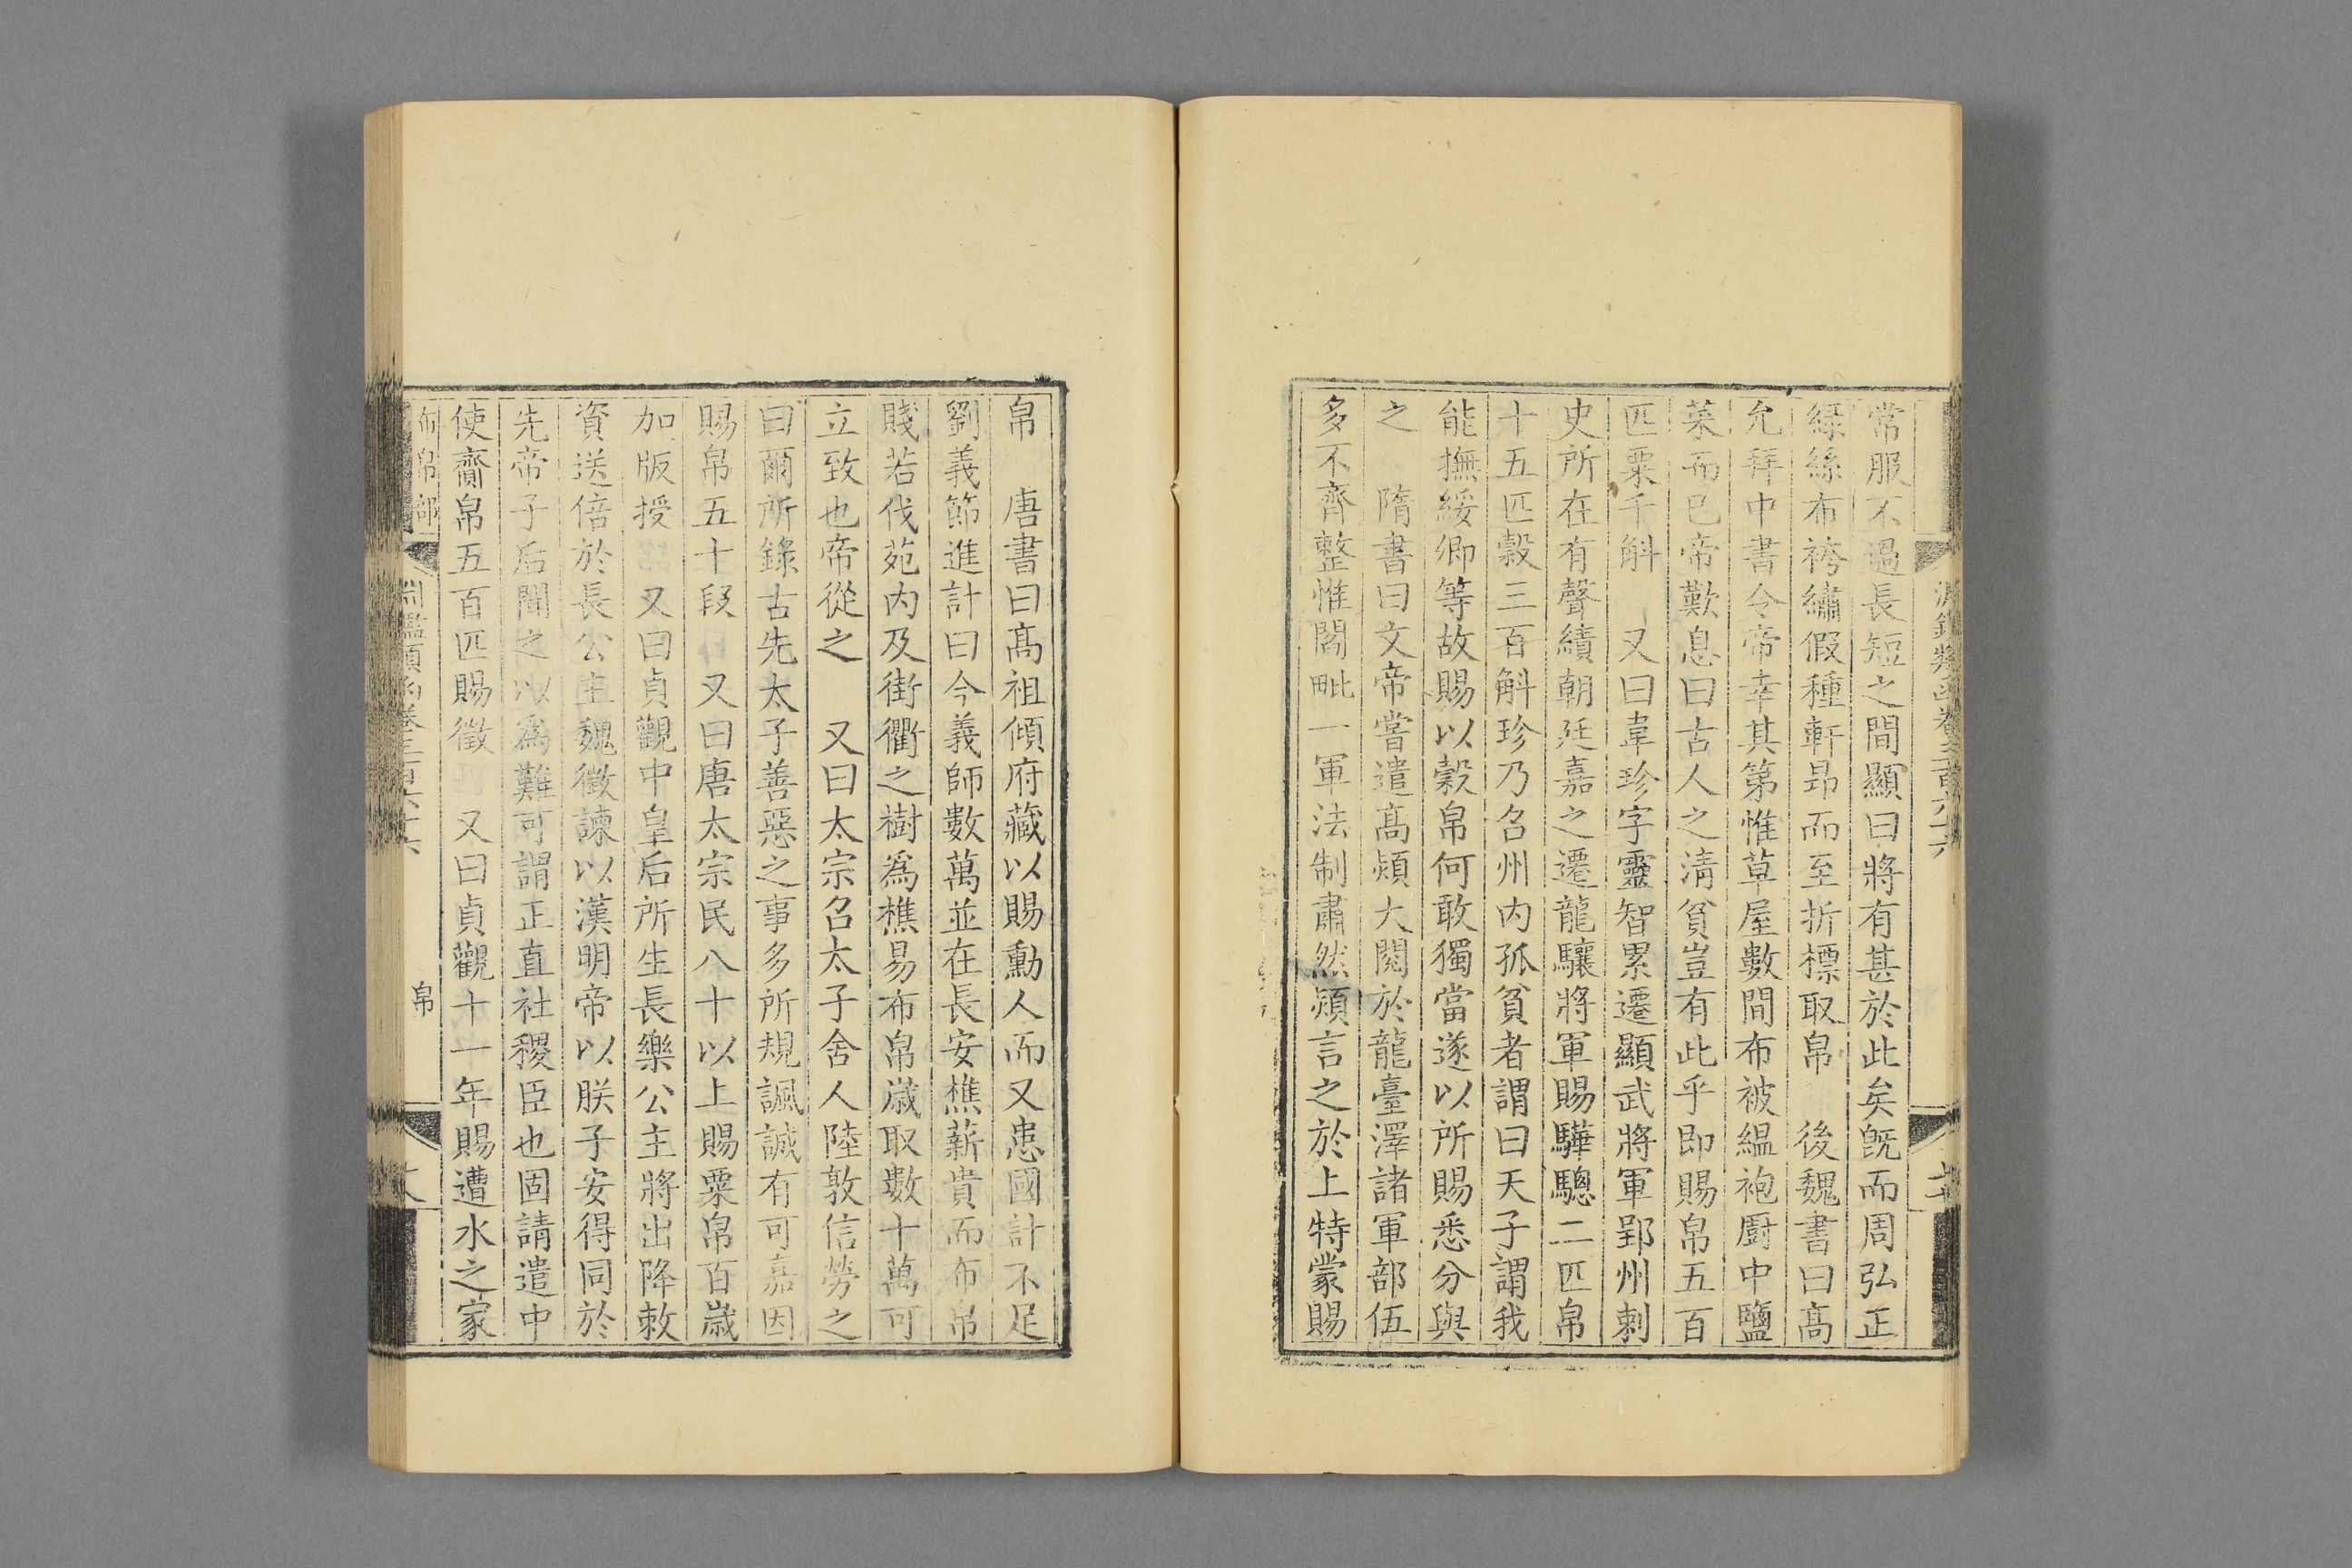 常服不過長短之間顯曰將有甚於此矣旣而周弘正
綠絲布袴繡假種軒昂而至折標取帛　後魏書曰髙
允拜中書令帝幸其第惟草屋數間布被緼袍厨中鹽
菜而已帝歎息曰古人之淸貧豈有此乎即賜帛五百
匹粟千斛　又曰韋珍字靈智累遷顯武將軍郢州刺
史所在有聲績朝廷嘉之遷龍驤將軍賜驊騮二匹帛
十五匹穀三百斛珍乃召州内孤貧者謂曰天子謂我
能撫綏卿等故賜以穀帛何敢獨當遂以所賜悉分與
之　隋書曰文帝嘗遣髙熲大閱於龍臺澤諸軍部伍
多不齊整惟閻毗一軍法制肅然熲言之於上特蒙賜
帛　唐書曰髙祖傾府藏以賜勳人而又患國計不足
劉義節進計曰今義師數萬並在長安樵薪貴而布帛
賤若伐苑内及街衢之樹爲樵易布帛歳取數十萬可
立致也帝從之　又曰太宗召太子舍人陸敦信勞之
曰爾所錄古先太子善惡之事多所規諷誠有可嘉因
賜帛五十段　又曰唐太宗民八十以上賜粟帛百歳
加版授　又曰貞觀中皇后所生長樂公主將出降敕
資送倍於長公主魏徵諫以漢明帝以朕子安得同於
先帝子后聞之以爲難可謂正直社稷臣也固請遣中
使齎帛五百匹賜徵　又曰貞觀十一年賜遭水之家
布帛部　淵鑑類函卷三百六十六　帛